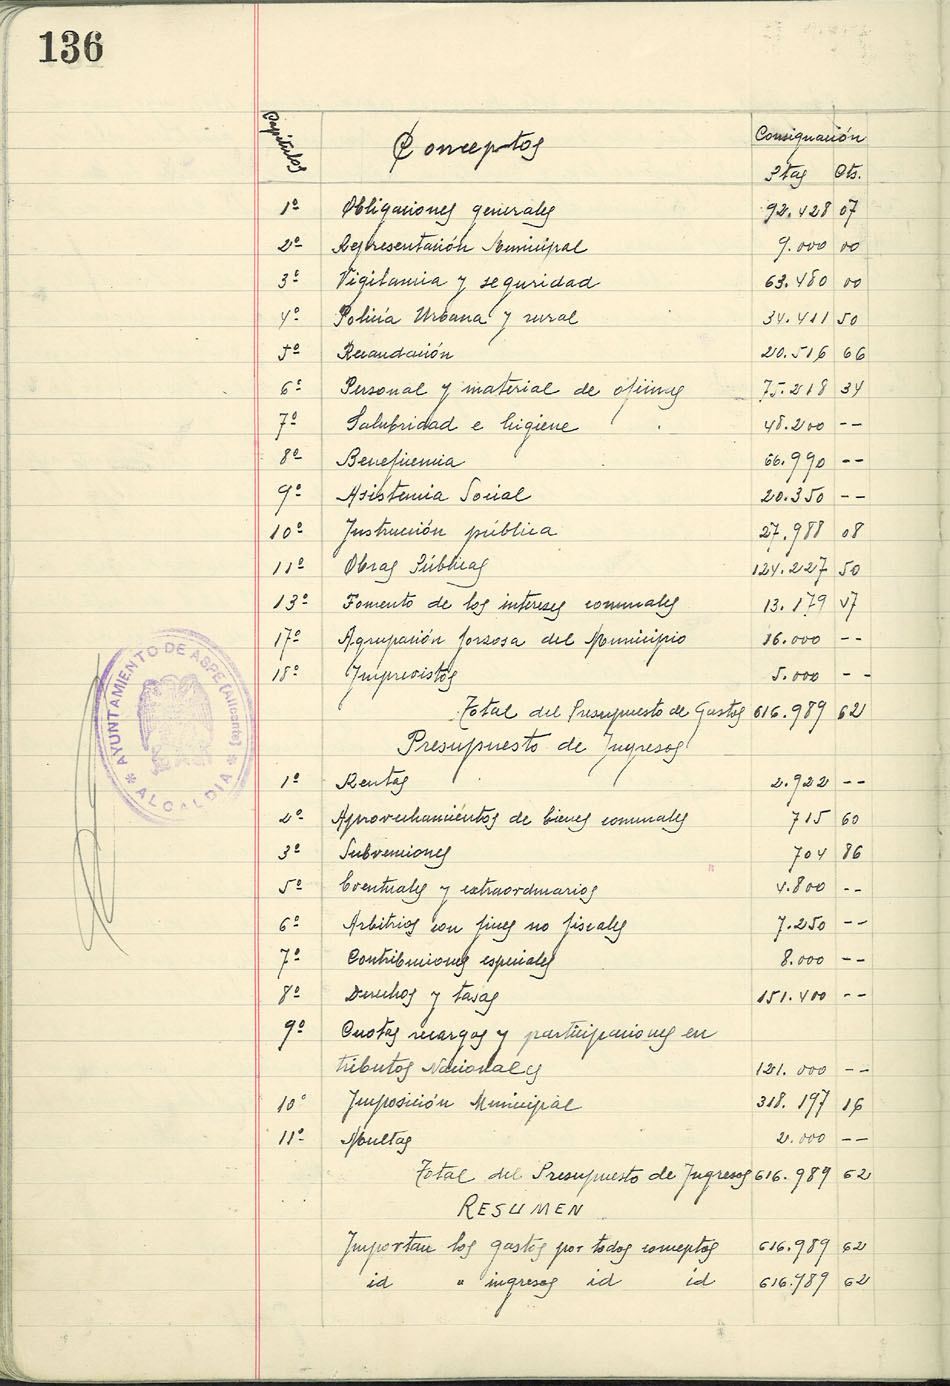 136
Capítulos Conceptos Consignación
Ptas Cts.
1º Obligaciones generales 92.428 07
2º Representación Municipal 9.000 00
3º Vigilancia y seguridad 63.480 00
4º Policía Urbana y rural 34.411 50
5º Recaudación 20.516 66
6º Personal y material de oficinas 75.218 34
7º Salubridad e higiene 48.200 --
8º Beneficencia 66.990 --
9º Asistencia Social 20.350 --
10º Instrucción pública 27.988 08
11º Obras Públicas 124.227 50
13º Fomento de los intereses comunales 13.179 47
17º Agrupación forzosa del Municipio 16.000 --
18º Imprevistos 5.000 --
Total del Presupuesto de Gastos 616.989 62
Presupuesto de Ingresos
1º Rentas 2.922 --
2º Aprovechamientos de bienes comunales 715 60
3º Subvenciones 704 86
5º Eventuales y extraordinarios 4.800 --
6º Arbitrios con fines no fiscales 7.250 --
7º Contribuciones especiales 8.000 --
8º Derechos y tasas 151.400 --
9º Cuotas recargos y participaciones en
tributos Nacionales 121.000 --
10º Imposición Municipal 318.197 16
11º Multas 2.000 --
Total del Presupuesto de Ingresos 616.989 62
RESUMEN
Importan los gastos por todos conceptos 616.989 62
id " ingresos id id 616.989 62
AYUNTAMIENTO DE ASPE (Alicante)
* ALCALDIA *